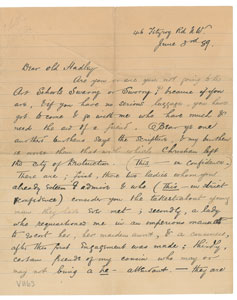 46 Fitzroy Rd N.W.
June 3rd 89.
Dear old Hadley
Are you or are you not going to the
Art Schools Swarry or Swurry? because if you
are, & if you have no serious luggage, you have
got to come & go with me who have much &
need the aid of a friend. (Bear ye one
another's burthens says the Scripture & my burthen
is more than that with which Christian left
the City of Destruction (This — in confidence.
There are; first, two ladies whom you
already esteem & admire & who (This — in strict
confidence) consider you the
man they have ever met; secondly, a lady
who requisitioned me in an imperious
to escort her, her maiden aunt, & a
after this first Engagement was made; thirdly,
certain friends of my cousin who may or
may not bring a he-attendant — they are